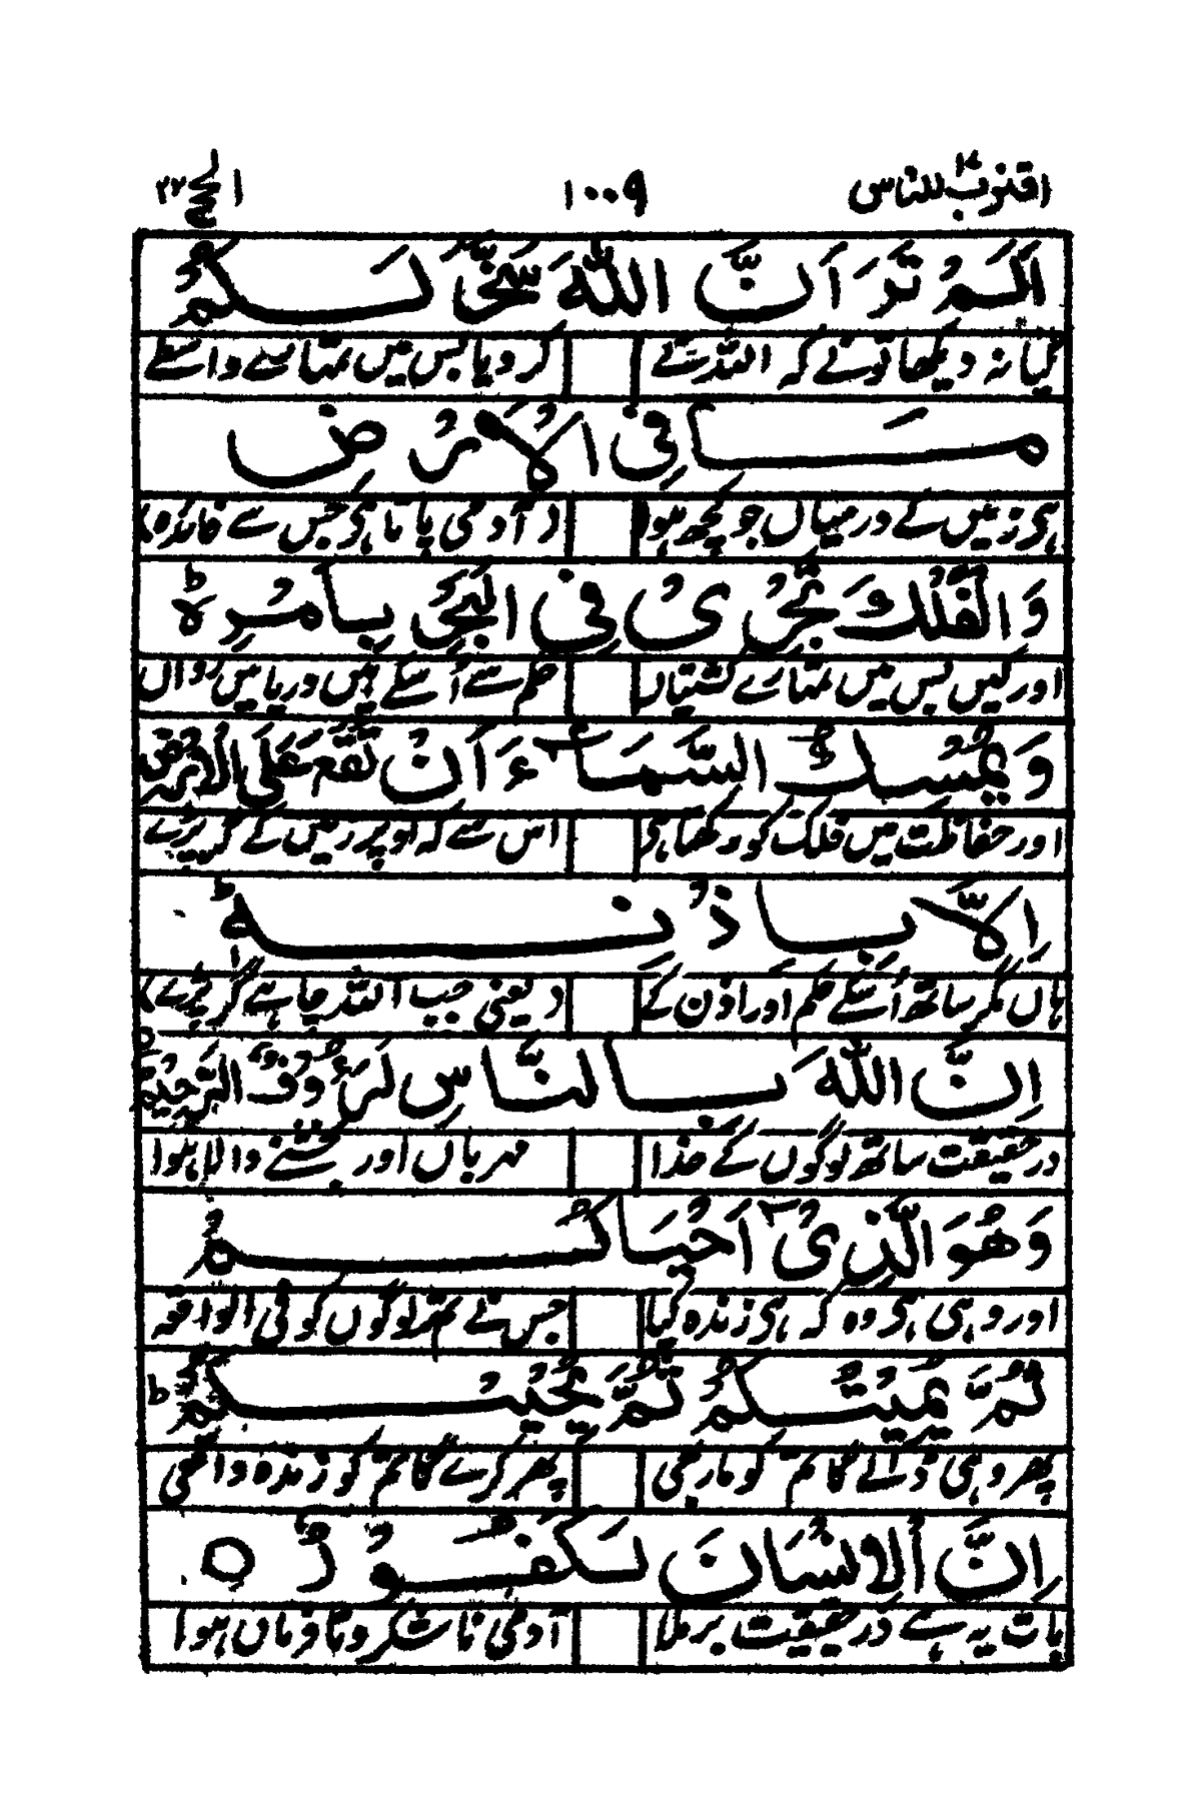 اقترب للناس ۱۷ ۱۰۰۹ الحج ۲۲
اَلَمْ تَرَ اَنَّ اللّٰهَ سَخَّرَ لَكُمْ
کیا نہ دیکھا تونے کہ اللہ نے کر دیا بس میں تمہارے واسطے
مَّا فِی الْاَرْضِ
ہی زمیں کے درمیاں جو کچھ ہوا (آدمی پاتا ہی جس سے فائدہ)
وَالْفُلْكَ تَجْرِیْ فِی الْبَحْرِ بِاَمْرِهٖ ط
اور کیں بس میں تمہارے کشتیاں حکم سے اُسکے ہیں دریا میں رواں
وَیُمْسِكُ السَّمَآءَ اَنْ تَقَعَ عَلَی الْاَرْضِ
اور حفاظت میں فلک کو رکھا ہی اس سے کہ اوپر زمیں کے گر پڑے
اِلَّا بِاِذْنِهٖ ط
ہاں مگر ساتھ اُسکے حکم اور اذن کے (یعنی جب اللہ چاہے گر پڑے)
اِنَّ اللّٰهَ بِالنَّاسِ لَرَءُوْفٌ الرَّحِیْمٌ
در حقیقت ساتھ لوگوں کے خدا مہرباں اور بخشنے والا ہوا
وَهُوَ الَّذِیْۤ اَحْیَاكُمْ
اور وہی ہی وہ کہ ہی زندہ کیا جس نے تم لوگوں کو فی الواقعہ
ثُمَّ یُمِیْتُكُمْ ثُمَّ یُحْیِیْكُمْ ط
پھر وہی ڈالے گا تم کو مار بھی پھر کرے گا تم کو زندہ واقعی
اِنَّ الْاِنْسَانَ لَكَفُوْرٌ ○
بات یہ ہے در حقیقت برملا آدمی ناشکر و نافرماں ہوا